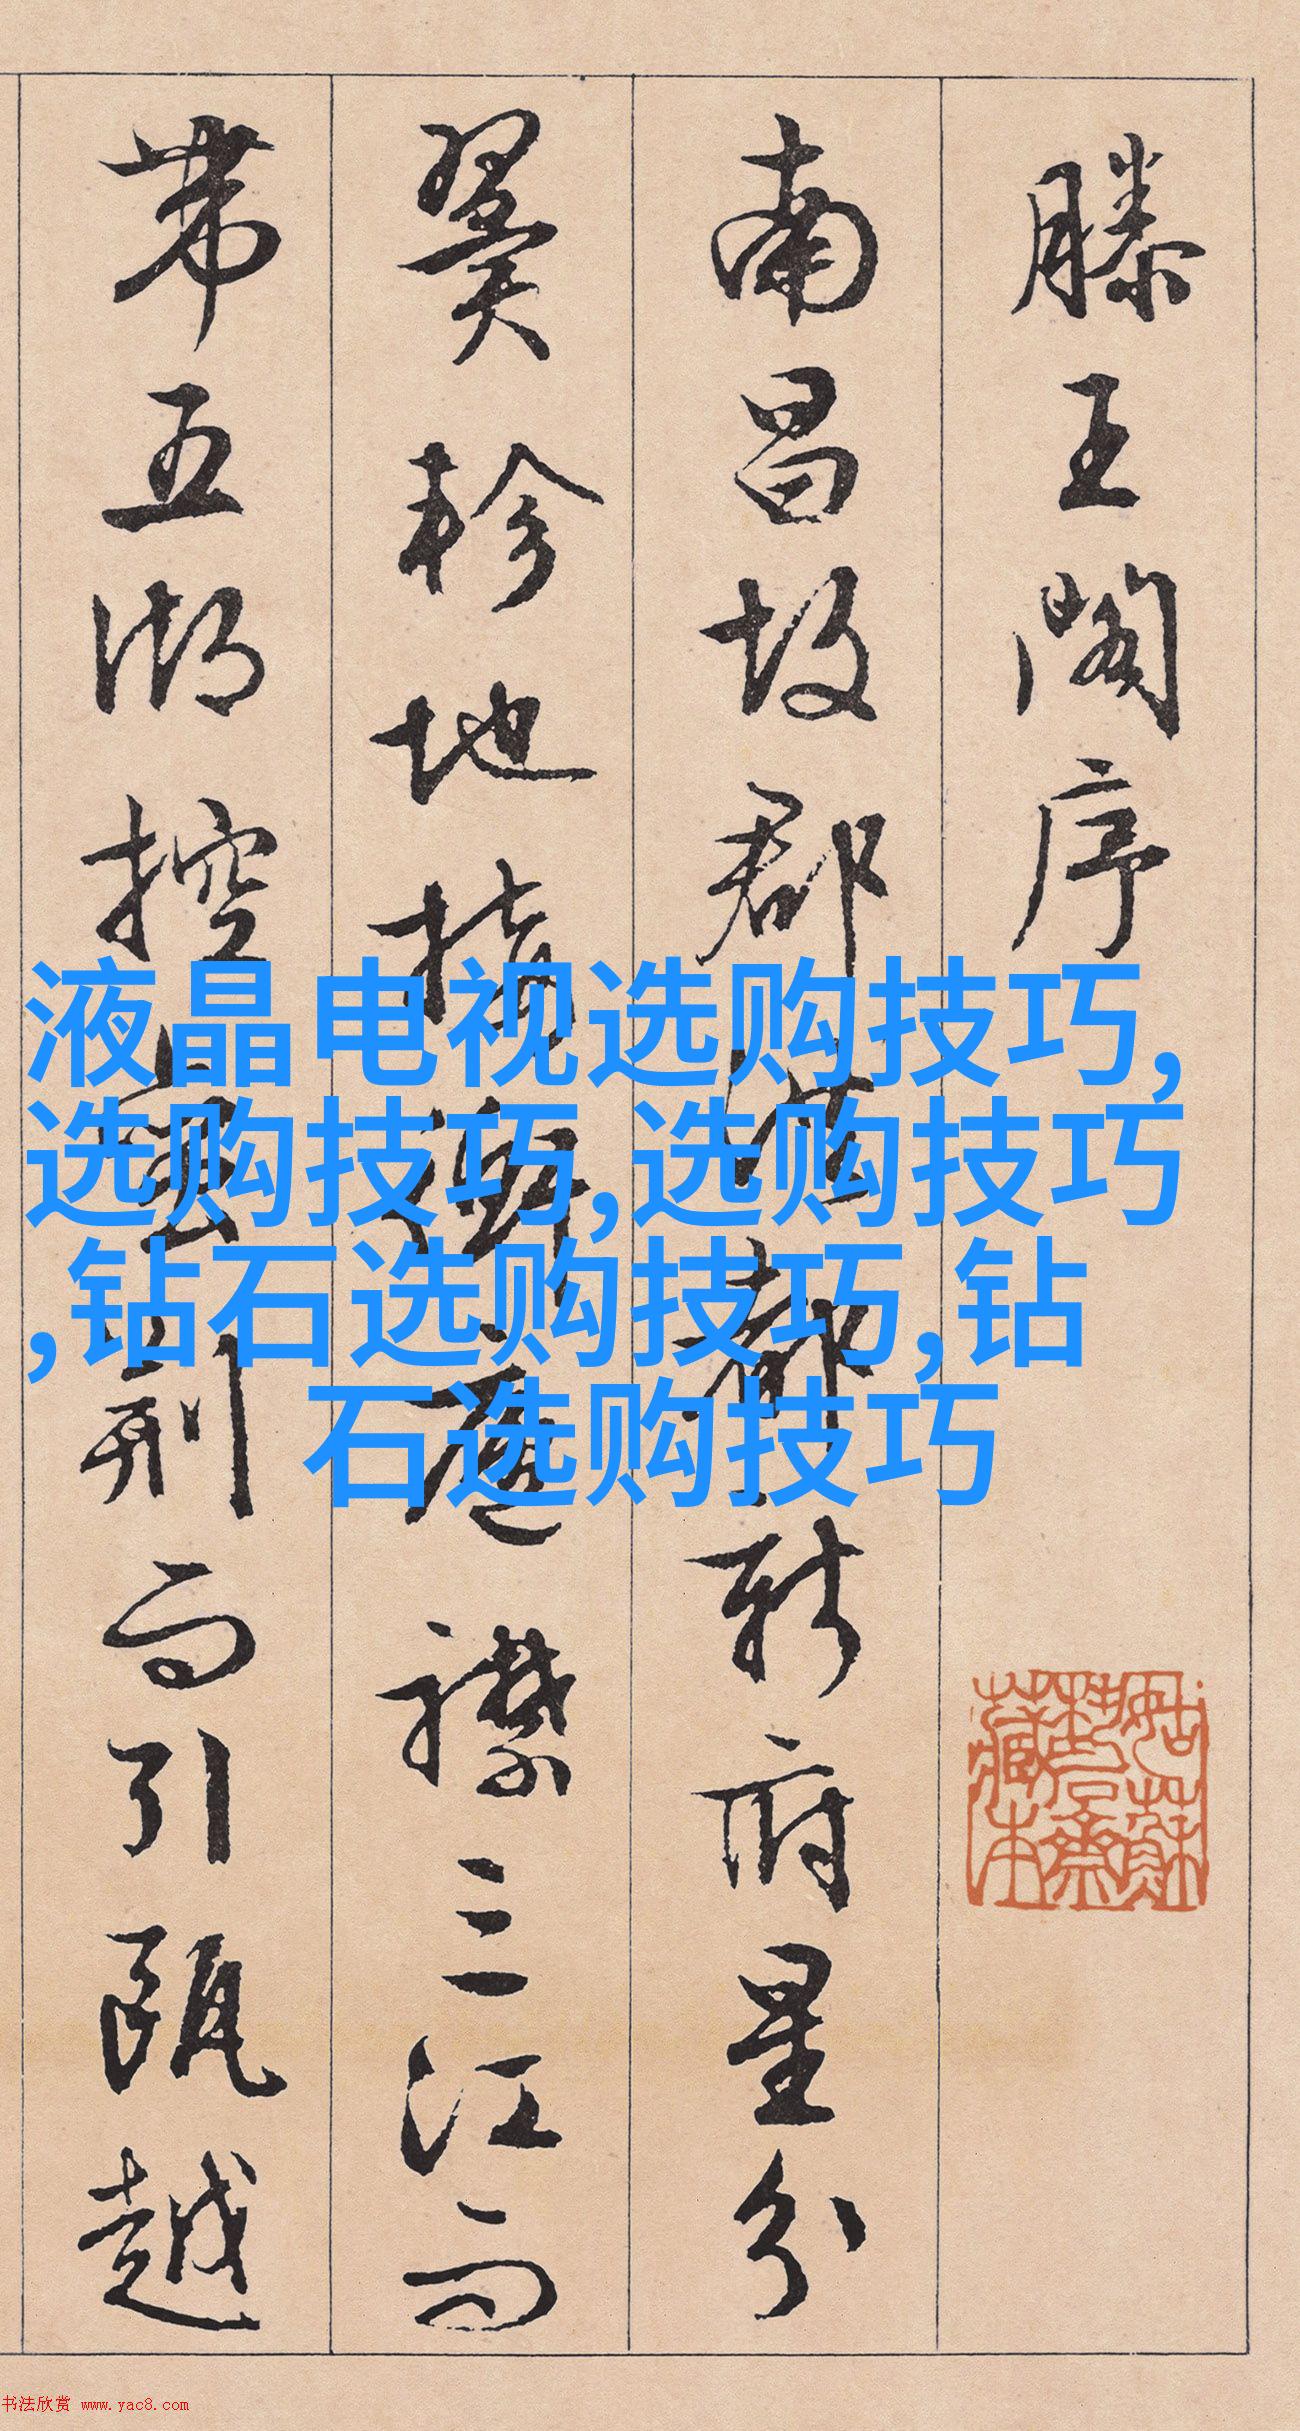 滕王閣序
南昌故郡洪都新府星分
翼軫地接衡廬襟三江而
帶五湖控蠻荊而引甌越
液晶电视选购技巧,
选购技巧,选购技巧
,钻石选购技巧,钻
石选购技巧
姑蘇
藏本
书法欣赏 www.yac8.com